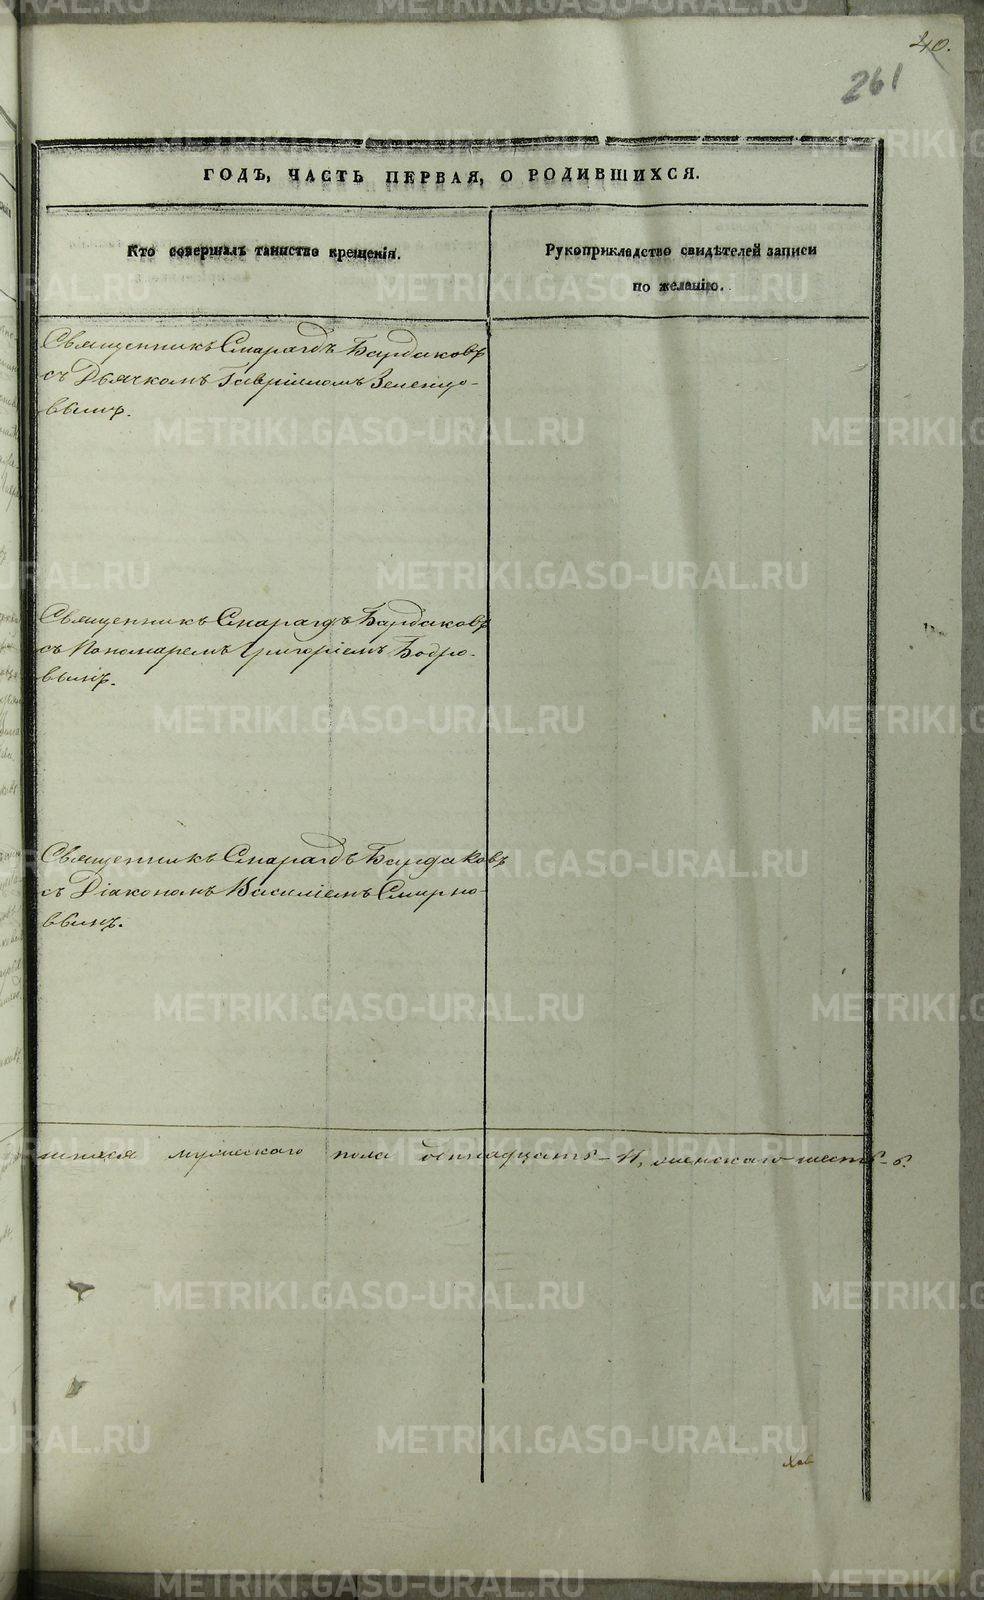 40.
261
ГОДЪ, ЧАСТЬ ПЕРВАЯ, О РОДИВШИХСЯ.
Кто совершалъ таинство крещенія.
Рукоприкладство свидѣтелей записи
по желанію.
Священникъ Смарагдъ Бардаковъ
съ Дьячкомъ Гавріиломъ Зеленцо-
вымъ.
Священникъ Смарагдъ Бардаковъ
съ Пономаремъ Григоріемъ Бодро-
вымъ.
Священникъ Смарагдъ Бардаковъ
съ Діакономъ Василіемъ Смирно-
вымъ.
шихся мужескаго пола женскаго шесть - 6.
METRIKI.GASO-URAL.RU